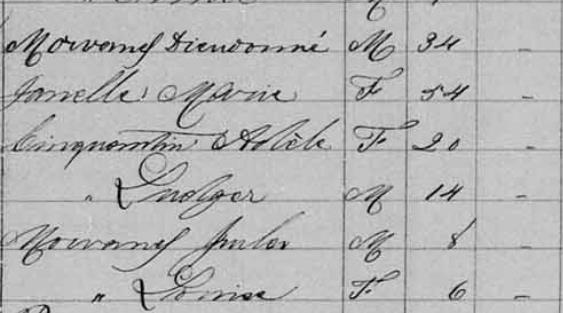 Morvans Dieudonné M 34 -
Janelle Marie F 54 -
Cinquantin Adèle F 20 -
" Ludger M 14 -
Morvans Jules M 8 -
" Louise F 6 -